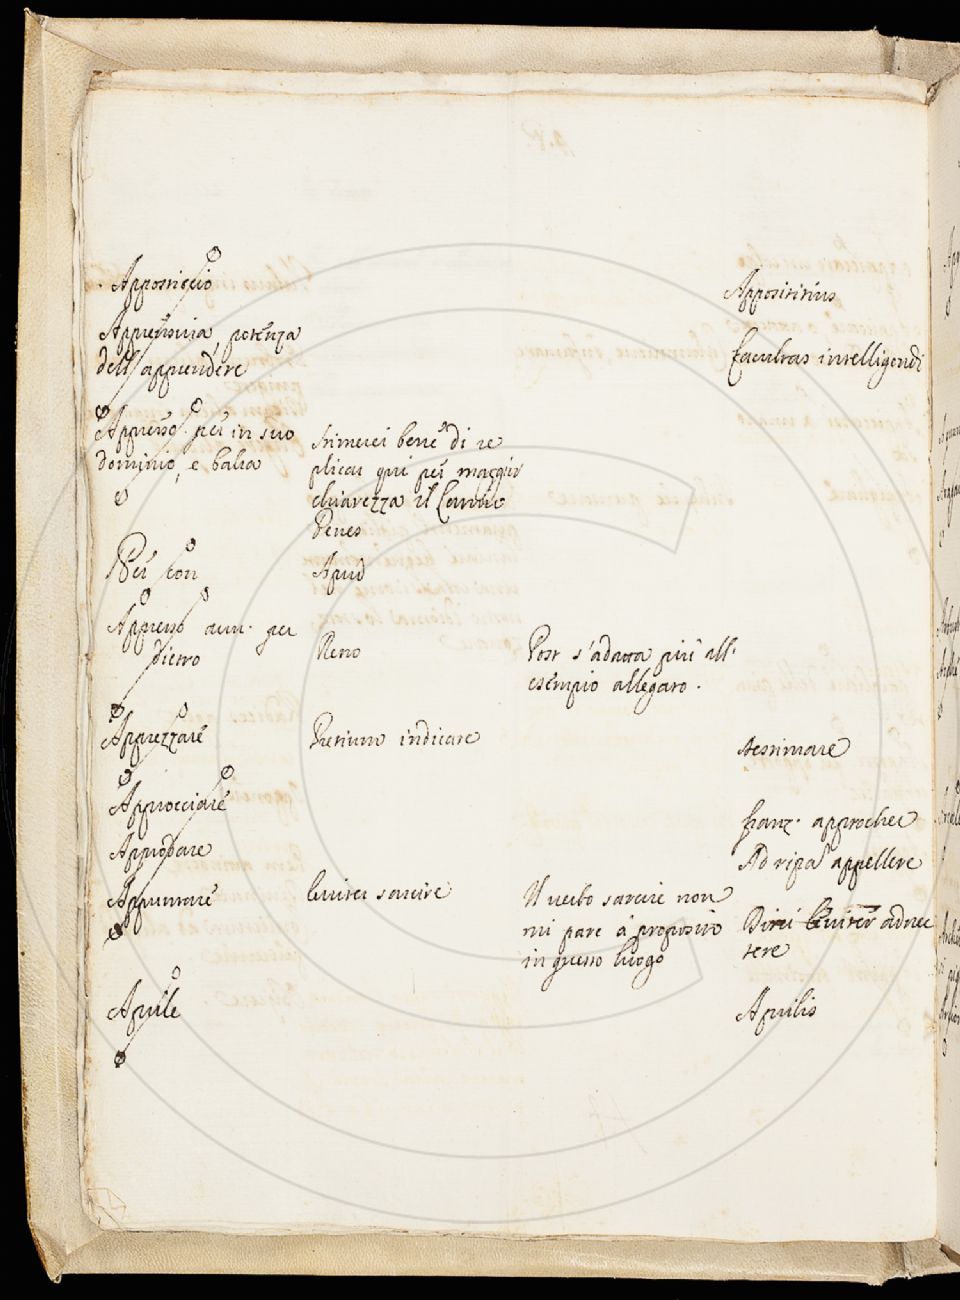 Apposticcio
Appositirius
Apprensiva, potenza
dell'apprendere
facultas intelligendi
Appresso per in suo
dominio, e balia
stimerei bene di re
plicar qui per maggior
chiarezza il
Penes
Per con
Apud
Appresso avv. per
dietro
Pono
Post s'adatta più all'
esempio allegato.
Apprezzare
Pretium indicare
Aestimare
Approcciare
franz. approcher
Approdare
Ad ripā appellere
Appuntare
leviter sarcire
Il verbo sarcire non
mi pare à proposito
in questo luogo
Direi leviter adnec
tere
Aprile
Aprilis